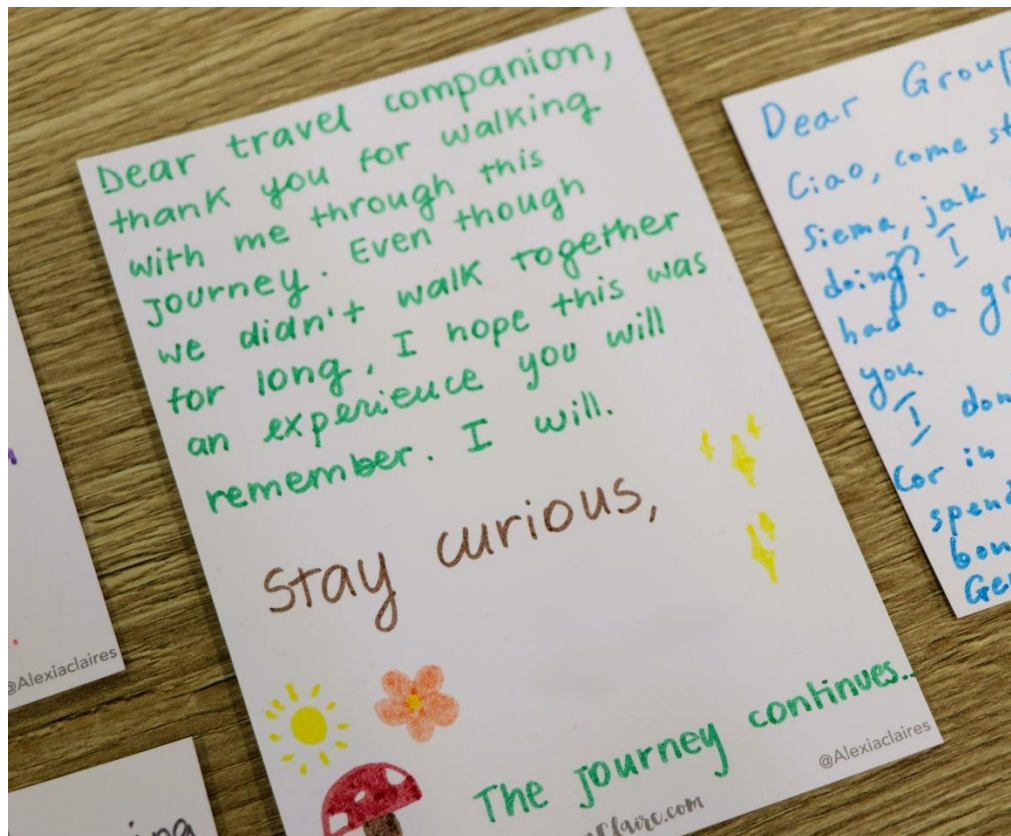 Dear travel companion,
thank you for walking
with me through this
journey. Even though
we didn't walk together
for long, I hope this was
an experience you will
remember. I will.
Stay curious,
The journey continues...
@Alexiaclaires
Claire.com
Dear
Ciao, come
Siema, jak
doing? I
had a
you.
I
Cor in
@Alexiaclaires